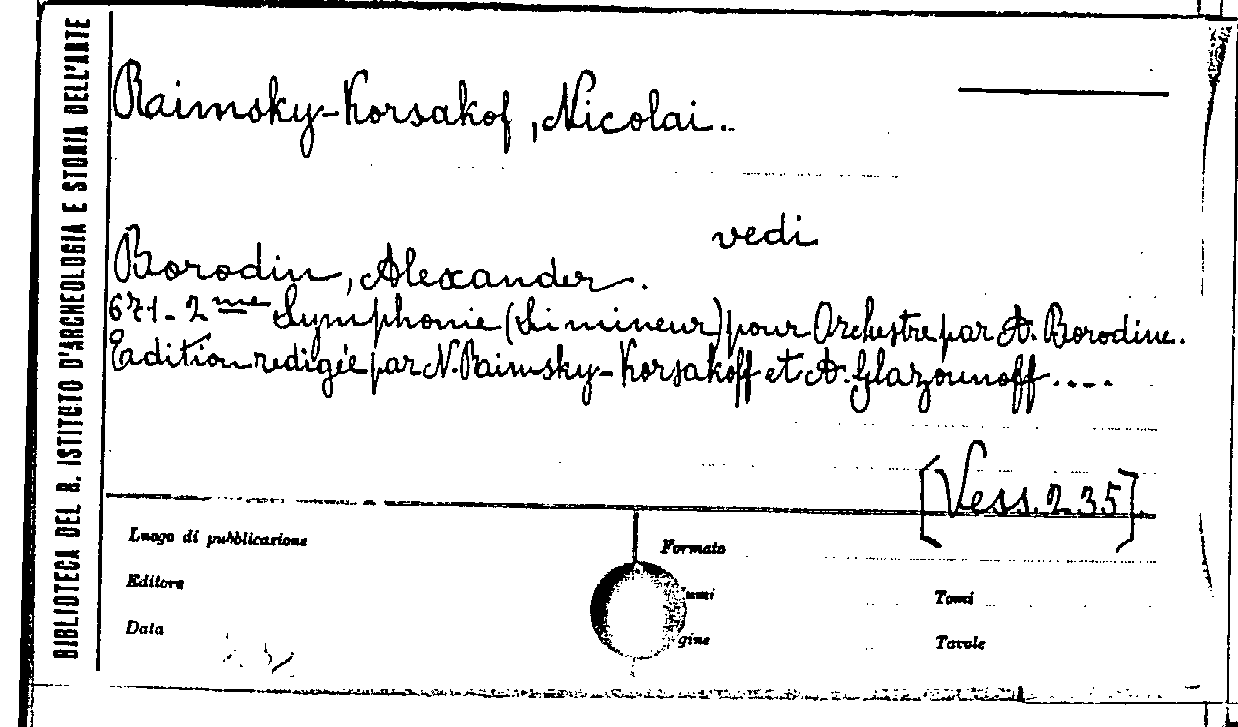 BIBLIOTECA DEL R. ISTITUTO D'ARCHEOLOGIA E STORIA DELL'ARTE
Raimsky-Korsakof, Nicolai..
vedi
Borodin, Alexander.
671-2me Symphonie (Si mineur) pour Orchestre par A. Borodine.
Eadition redigée par N. Raimsky-Korsakoff et A. Glazounoff....
[Vess. 235]
Luogo di pubblicazione
Formato
Editore
umi
Tomi
Data
gine
Tavole